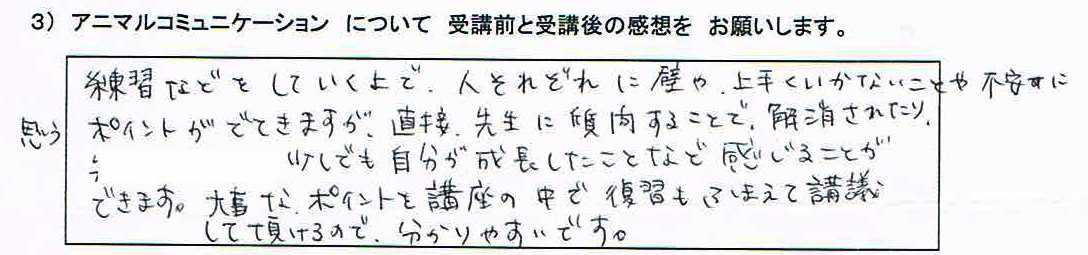 3） アニマルコミュニケーション について 受講前と受講後の感想を お願いします。
練習などをしていく上で、人それぞれに壁や、上手くいかないことや不安すに
思う ポイントがでてきますが、直接、先生に質問することで、解消されたり、
少しでも自分が成長したことなど感じることが
できます。大事な、ポイントを講座の中で復習もふまえて講議
して頂けるので、分かりやすいです。